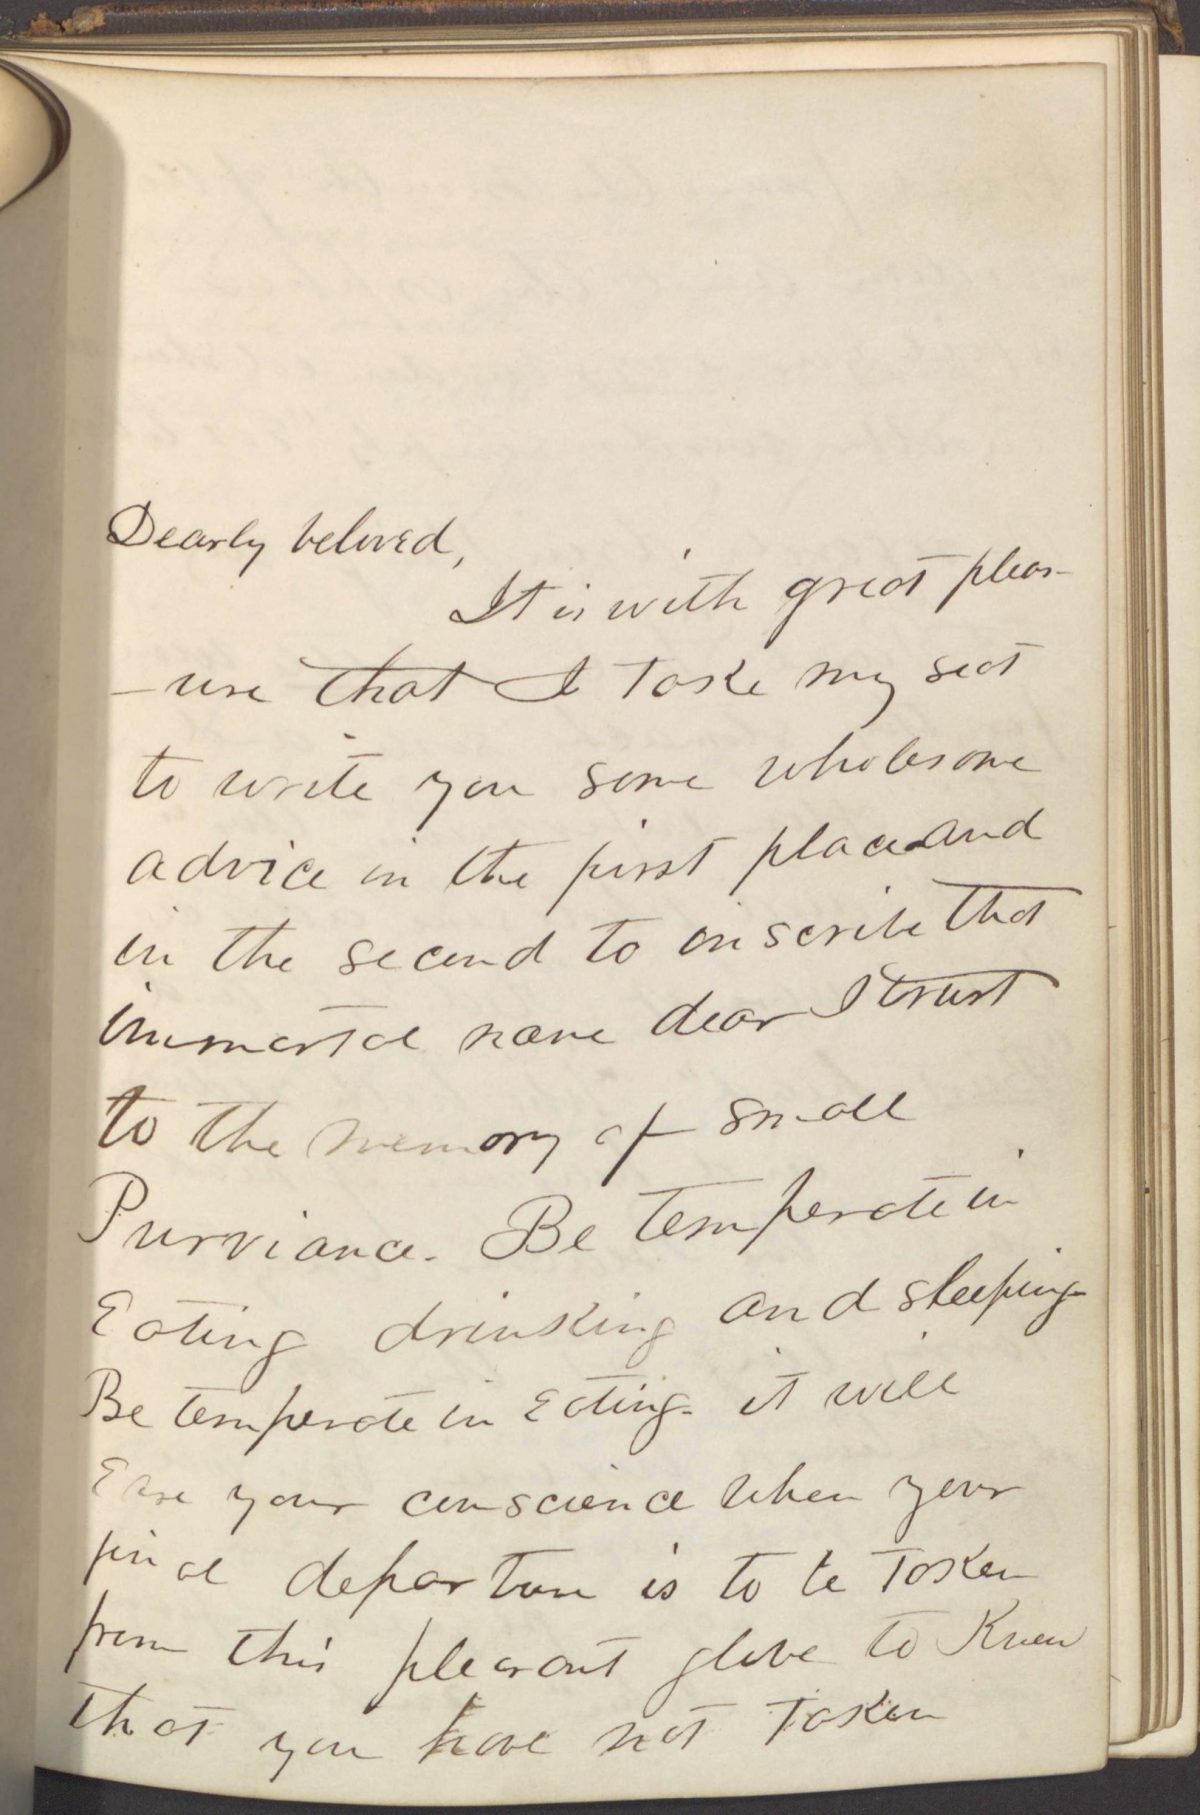 Dearly beloved,
It is with great pleas-
-ure that I take my seat
to write you some wholesome
advice in the first place and
in the second to inscribe that
immortal name dear I trust
to the memory of small
Purviance. Be temperate in
Eating drinking and sleeping
Be temperate in Eating. it will
Ease your conscience when your
final departure is to be taken
from this pleasant globe to Know
that you have not taken